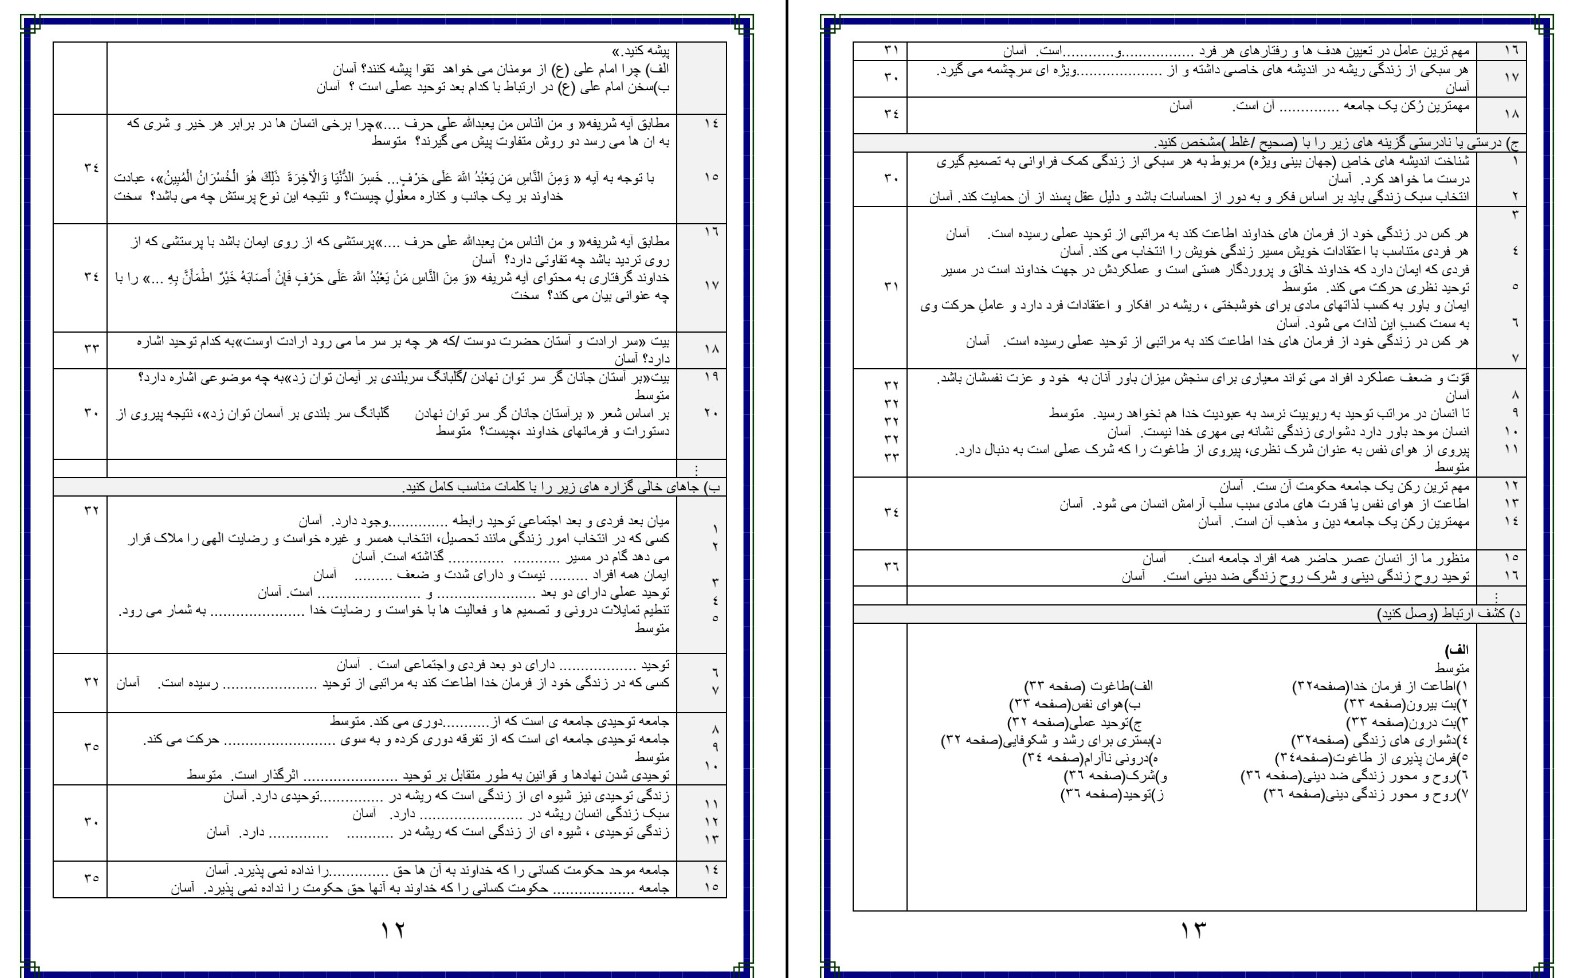 پیشه کنید.»
الف) چرا امام علی (ع) از مومنان می خواهد تقوا پیشه کنند؟ آسان
ب)سخن امام علی (ع) در ارتباط با کدام بعد توحید عملی است ؟ آسان
١٤ مطابق آیه شریفه« و من الناس من یعبدالله علی حرف ....»چرا برخی انسان ها در برابر هر خیر و شری که
به ان ها می رسد دو روش متفاوت پیش می گیرند؟ متوسط
٣٤
١٥ با توجه به آیه « وَمِنَ النَّاسِ مَن یَعْبُدُ اللهَ عَلَى حَرْفٍ... خَسِرَ الدُّنْیَا وَالْآخِرَةَ ذَلِكَ هُوَ الْخُسْرَانُ الْمُبِینُ»، عبادت
خداوند بر یک جانب و کناره معلولِ چیست؟ و نتیجه این نوع پرستش چه می باشد؟ سخت
١٦ مطابق آیه شریفه« و من الناس من یعبدالله علی حرف ....»پرستشی که از روی ایمان باشد با پرستشی که از
روی تردید باشد چه تفاوتی دارد؟ آسان
١٧ خداوند گرفتاری به محتوای آیه شریفه «وَ مِنَ النَّاسِ مَنْ یَعْبُدُ اللهَ عَلَى حَرْفٍ فَإِنْ أَصَابَهُ خَیْرٌ اطْمَأَنَّ بِهِ ...» را با ٣٤
چه عنوانی بیان می کند؟ سخت
١٨ بیت «سر ارادت و آستان حضرت دوست /که هر چه بر سر ما می رود ارادت اوست»به کدام توحید اشاره ٣٣
دارد؟ آسان
١٩ بیت«بر آستان جانان گر سر توان نهادن /گلبانگ سربلندی بر آیمان توان زد»به چه موضوعی اشاره دارد؟
متوسط
٢٠ بر اساس شعر « برآستان جانان گر سر توان نهادن گلبانگ سر بلندی بر آسمان توان زد»، نتیجه پیروی از ٣٠
دستورات و فرمانهای خداوند ،چیست؟ متوسط
⋮
ب) جاهای خالی گزاره های زیر را با کلمات مناسب کامل کنید.
٣٢
١ میان بعد فردی و بعد اجتماعی توحید رابطه ..............وجود دارد. آسان
٢ کسی که در انتخاب امور زندگی مانند تحصیل، انتخاب همسر و غیره خواست و رضایت الهی را ملاک قرار
می دهد گام در مسیر ........... ............. گذاشته است. آسان
٣ ایمان همه افراد ......... نیست و دارای شدت و ضعف ......... آسان
٤ توحید عملی دارای دو بعد ....................... و ........................ است. آسان
٥ تنظیم تمایلات درونی و تصمیم ها و فعالیت ها با خواست و رضایت خدا ...................... به شمار می رود.
متوسط
٦ توحید .................. دارای دو بعد فردی واجتماعی است . آسان
٧ کسی که در زندگی خود از فرمان خدا اطاعت کند به مراتبی از توحید ...................... رسیده است. آسان ٣٢
٨ جامعه توحیدی جامعه ی است که از...........دوری می کند. متوسط
٩ جامعه توحیدی جامعه ای است که از تفرقه دوری کرده و به سوی .......................... حرکت می کند. ٣٥
متوسط
١٠ توحیدی شدن نهادها و قوانین به طور متقابل بر توحید ...................... اثرگذار است. متوسط
١١ زندگی توحیدی نیز شیوه ای از زندگی است که ریشه در ...............توحیدی دارد. آسان
١٢ سبک زندگی انسان ریشه در ........................ دارد. آسان ٣٠
١٣ زندگی توحیدی ، شیوه ای از زندگی است که ریشه در ........... .............. دارد. آسان
١٤ جامعه موحد حکومت کسانی را که خداوند به آن ها حق ..............را نداده نمی پذیرد. آسان ٣٥
١٥ جامعه ................... حکومت کسانی را که خداوند به آنها حق حکومت را نداده نمی پذیرد. آسان
١٢
١٦ مهم ترین عامل در تعیین هدف ها و رفتارهای هر فرد .................و............است. آسان ٣١
١٧ هر سبکی از زندگی ریشه در اندیشه های خاصی داشته و از ....................ویژه ای سرچشمه می گیرد. ٣٠
آسان
١٨ مهمترین رُکن یک جامعه .............. آن است. آسان ٣٤
ج) درستی یا نادرستی گزینه های زیر را با (صحیح /غلط )مشخص کنید.
١ شناخت اندیشه های خاص (جهان بینی ویژه) مربوط به هر سبکی از زندگی کمک فراوانی به تصمیم گیری
درست ما خواهد کرد. آسان ٣٠
٢ انتخاب سبک زندگی باید بر اساس فکر و به دور از احساسات باشد و دلیل عقل پسند از آن حمایت کند. آسان
٣ هر کس در زندگی خود از فرمان های خداوند اطاعت کند به مراتبی از توحید عملی رسیده است. آسان
٤ هر فردی متناسب با اعتقادات خویش مسیر زندگی خویش را انتخاب می کند. آسان
٥ فردی که ایمان دارد که خداوند خالق و پروردگار هستی است و عملکردش در جهت خداوند است در مسیر
توحید نظری حرکت می کند. متوسط ٣١
٦ ایمان و باور به کسب لذاتهای مادی برای خوشبختی ، ریشه در افکار و اعتقادات فرد دارد و عاملِ حرکت وی
به سمت کسبِ این لذات می شود. آسان
٧ هر کس در زندگی خود از فرمان های خدا اطاعت کند به مراتبی از توحید عملی رسیده است. آسان
٨ قوّت و ضعف عملکرد افراد می تواند معیاری برای سنجش میزان باور آنان به خود و عزت نفسشان باشد. ٣٢
آسان
٩ تا انسان در مراتب توحید به ربوبیت نرسد به عبودیت خدا هم نخواهد رسید. متوسط ٣٢
١٠ انسان موحد باور دارد دشواری زندگی نشانه بی مهری خدا نیست. آسان ٣٢
١١ پیروی از هوای نفس به عنوان شرک نظری، پیروی از طاغوت را که شرک عملی است به دنبال دارد. ٣٢
متوسط ٣٣
١٢ مهم ترین رکن یک جامعه حکومت آن ست. آسان
١٣ اطاعت از هوای نفس یا قدرت های مادی سبب سلب آرامش انسان می شود. آسان ٣٤
١٤ مهمترین رکن یک جامعه دین و مذهب آن است. آسان
١٥ منظور ما از انسان عصر حاضر همه افراد جامعه است. آسان ٣٦
١٦ توحید روح زندگی دینی و شرک روح زندگی ضد دینی است. آسان
⋮
د) کشف ارتباط (وصل کنید)
الف)
متوسط
١)اطاعت از فرمان خدا(صفحه٣٢) الف)طاغوت (صفحه ٣٣)
٢)بت بیرون(صفحه ٣٣) ب)هوای نفس(صفحه ٣٣)
٣)بت درون(صفحه ٣٣) ج)توحید عملی(صفحه ٣٢)
٤)دشواری های زندگی (صفحه٣٢) د)بستری برای رشد و شکوفایی(صفحه ٣٢)
٥)فرمان پذیری از طاغوت(صفحه٣٤) ه)درونی ناآرام(صفحه ٣٤)
٦)روح و محور زندگی ضد دینی(صفحه ٣٦) و)شرک(صفحه ٣٦)
٧)روح و محور زندگی دینی(صفحه ٣٦) ز)توحید(صفحه ٣٦)
١٣